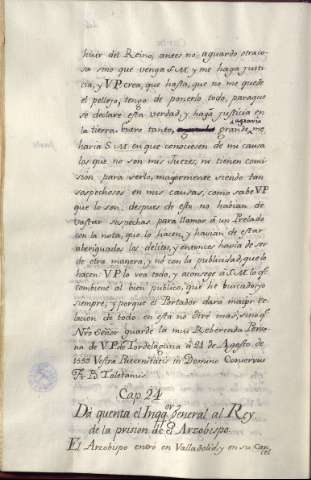 huir del Reino, antes no aguardo otra co-
sa sino que venga S.M. y me haga justi-
cia, y V.P. crea, que hasta, que no me quede
el pellejo, tengo de ponerlo todo, paraque
se declare esta verdad, y haga justicia en
la tierra. Entre tanto, agravio grande, me
haria S.M. en que conociesen de mi causa
los que no son mis Jueces, ni tienen comi-
sion para serlo, maiormente siendo tan
sospechosos en mis causas, como sabe V.P.
que lo son; despues de esto no habian de
vastar sospechas para llamar à un Prelado
con la nota, que lo hacen, y havian de estar
aberiguados los delitos, y entonces havia de ser
de otra manera, y nó con la publicidad, que lo
hacen. V.P. lo vea todo, y aconseje à S.M. lo qe.
combiene al bien publico, que hé buscado yo
siempre, y porque el Portador dará maior re-
lacion de todo en esta no diré mas, sino qe.
Nrô Señor guarde la mui Reberenda Perso-
na de V.P. de Tordelaguna à 21 de Agosto, de
1559 Vestra Paternitatis in Domino Conservus
Fr. B. Toletanus.
Cap. 24
Dá quenta el Inqqor. General al Rey
de la prision de el Arzobispo.
El Arzobispo entró en Valladolid, y en su Car-
cel